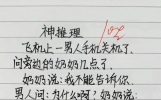 神推理
飞机上一男人手机关机了、
问旁边的奶奶几点了.
奶奶说:我不能告诉你.
男人问:为什么啊?奶奶说: